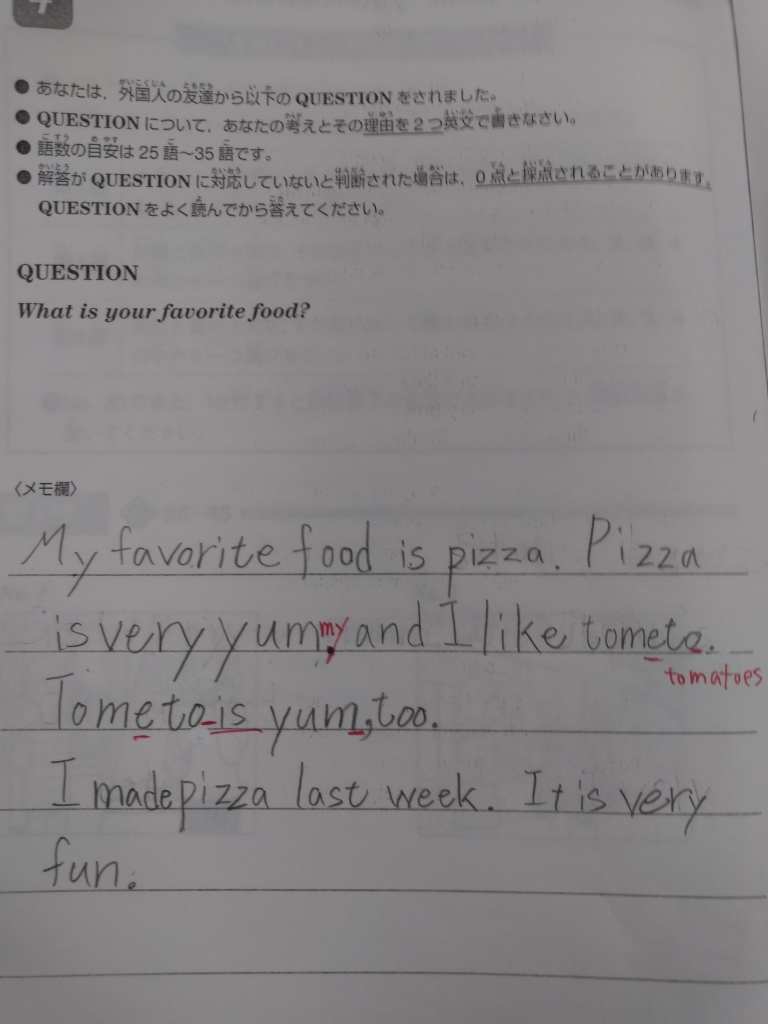 4
● あなたは、外国人の友達から以下の QUESTION をされました。
● QUESTION について、あなたの考えとその理由を2つ英文で書きなさい。
● 語数の目安は25語～35語です。
● 解答が QUESTION に対応していないと判断された場合は、0点と採点されることがあります。
QUESTION をよく読んでから答えてください。
QUESTION
What is your favorite food?
〈メモ欄〉
My favorite food is pizza. Pizza
is very yummy, and I like tometo.
tomatoes
Tometo is yum, too.
I made pizza last week. It is very
fun.